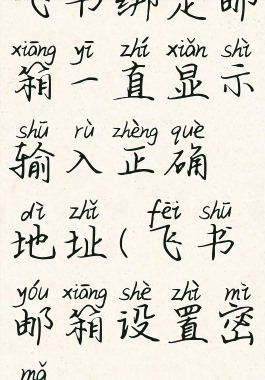 飞书绑定邮
xiāng yī zhí xiǎn shì
箱一直显示
shū rù zhèng què
输入正确
dì zhǐ fēi shū
地址(飞书
yóu xiāng shè zhì mì
邮箱设置密
mǎ